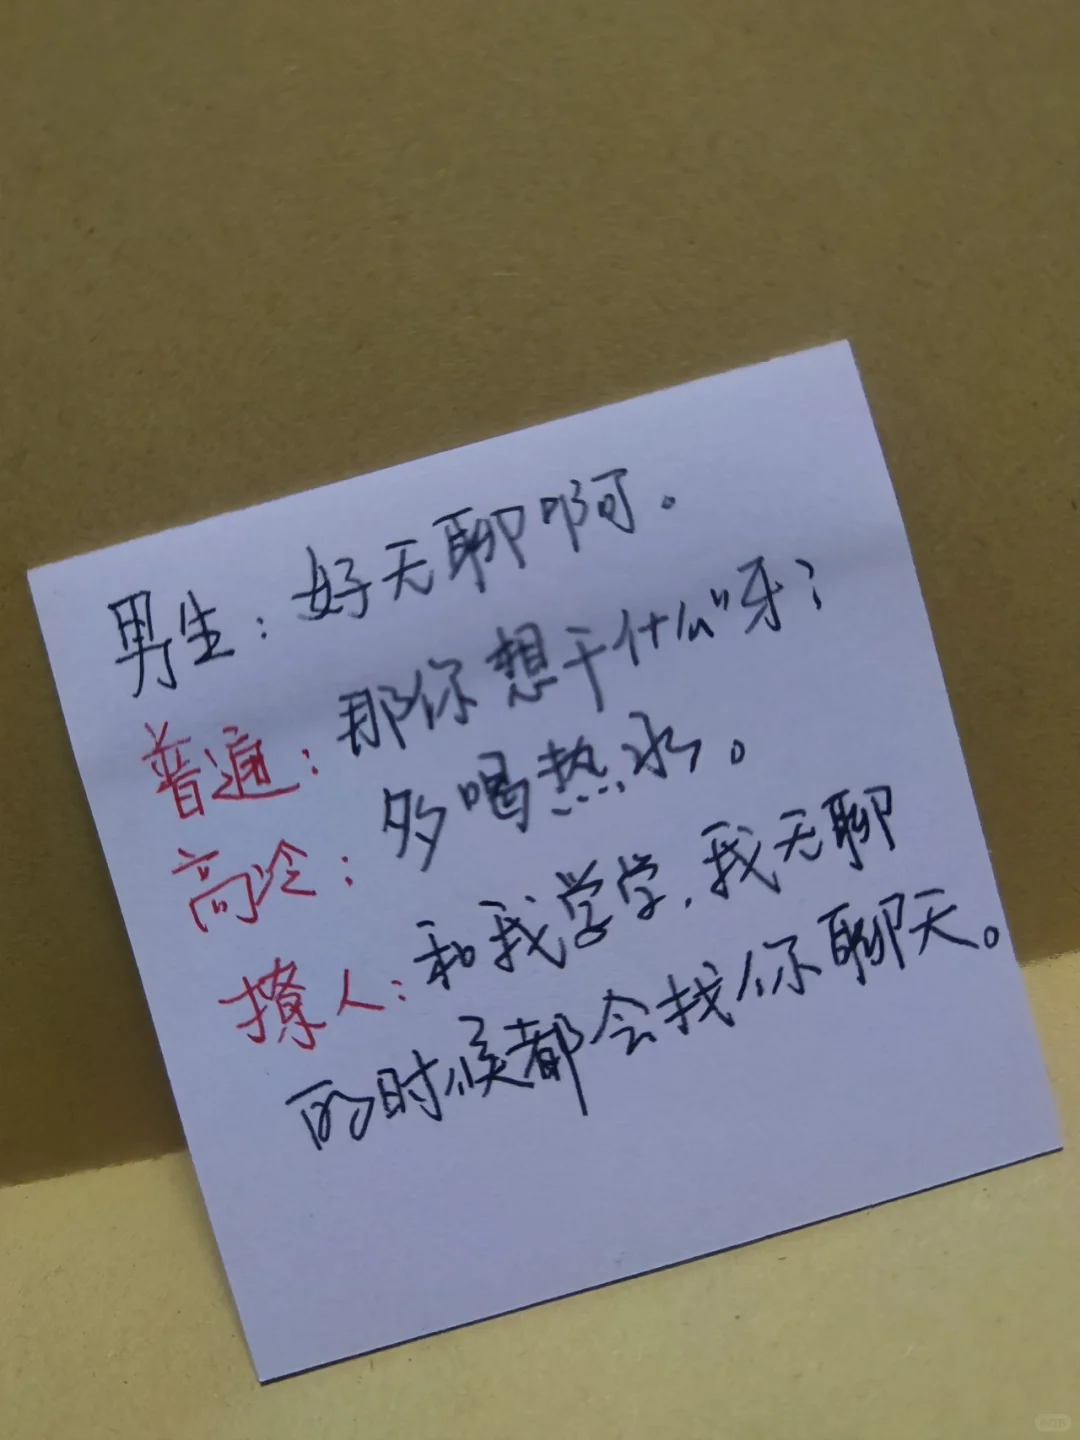 男生：好无聊啊。
普遍：那你想干什么"呀？
高冷：多喝热水。
撩人：和我学学，我无聊
的时候都会找你聊天。